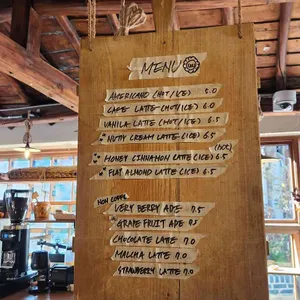 MENU
AMERICANO (HOT/ICE) 5.0
CAFE LATTE (HOT/ICE) 6.0
VANILA LATTE (HOT/ICE) 6.5
NUTTY CREAM LATTE (ICE) 6.5
(HOT)
HONEY CINNAMON LATTE (ICE) 6.5
FLAT ALMOND LATTE (ICE) 6.5
NON COFFEE
VERY BERRY ADE 7.5
GRAPE FRUIT ADE 7.5
CHOCOLATE LATTE 7.0
MALCHA LATTE 7.0
STRAWBERRY LATTE 7.0